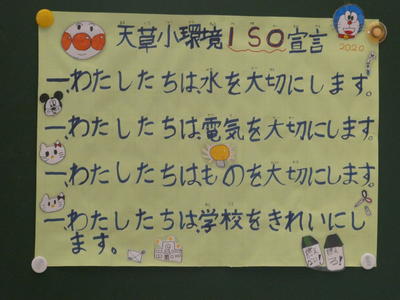 天草小環境ISO宣言
2020
一、わたしたちは、水を大切にします。
一、わたしたちは、電気を大切にします。
一、わたしたちは、ものを大切にします。
一、わたしたちは、学校をきれいにし
ます。